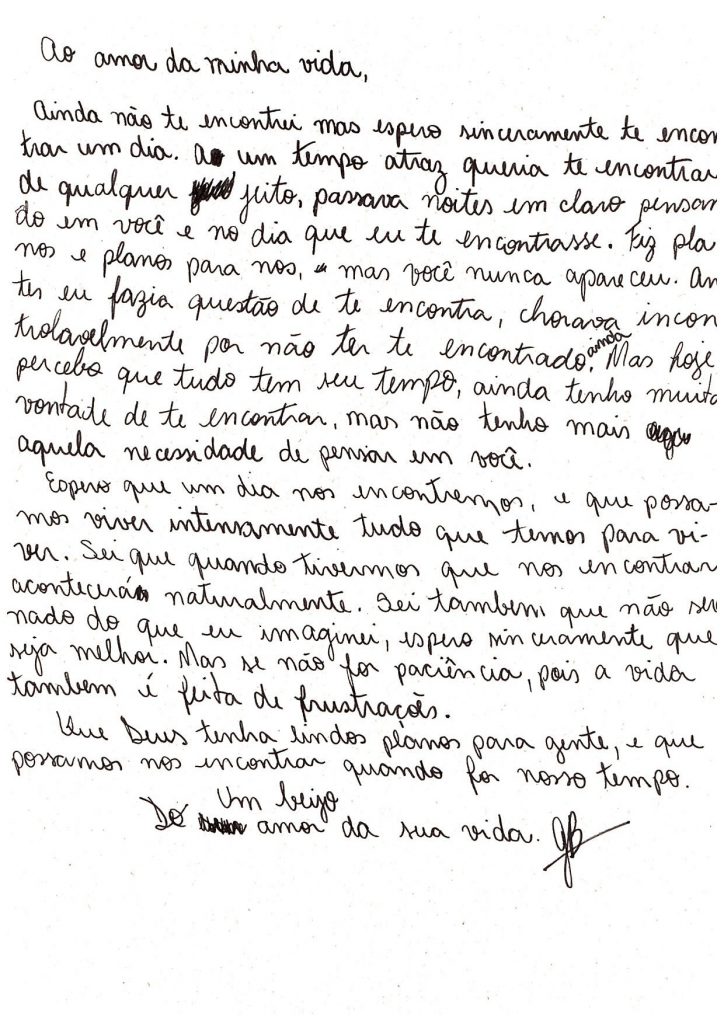 Ao amor da minha vida,
Ainda não te encontrei mas espero sinceramente te encon
trar um dia. Ao um tempo atraz queria te encontrar
de qualquer jeito, passava noites em claro pensan
do em você e no dia que eu te encontrasse. Fiz pla
nos e planos para nos, mas você nunca apareceu. An
tes eu fazia questão de te encontra, chorava incon
trolavelmente por não ter te encontrado ainda. Mas hoje
percebo que tudo tem seu tempo, ainda tenho muita
vontade de te encontrar, mas não tenho mais
aquela necessidade de pensar em você.
Espero que um dia nos encontremos, e que possa-
mos viver intensamente tudo que temos para vi-
ver. Sei que quando tivermos que nos encontrar
acontecerá naturalmente. Sei tambem que não será
nado do que eu imaginei, espero sinceramente que
seja melhor. Mas se não for paciência, pois a vida
tambem é feita de frustrações.
Que Deus tenha lindos planos para gente, e que
possamos nos encontrar quando for nosso tempo.
Um beijo
Do amor da sua vida.